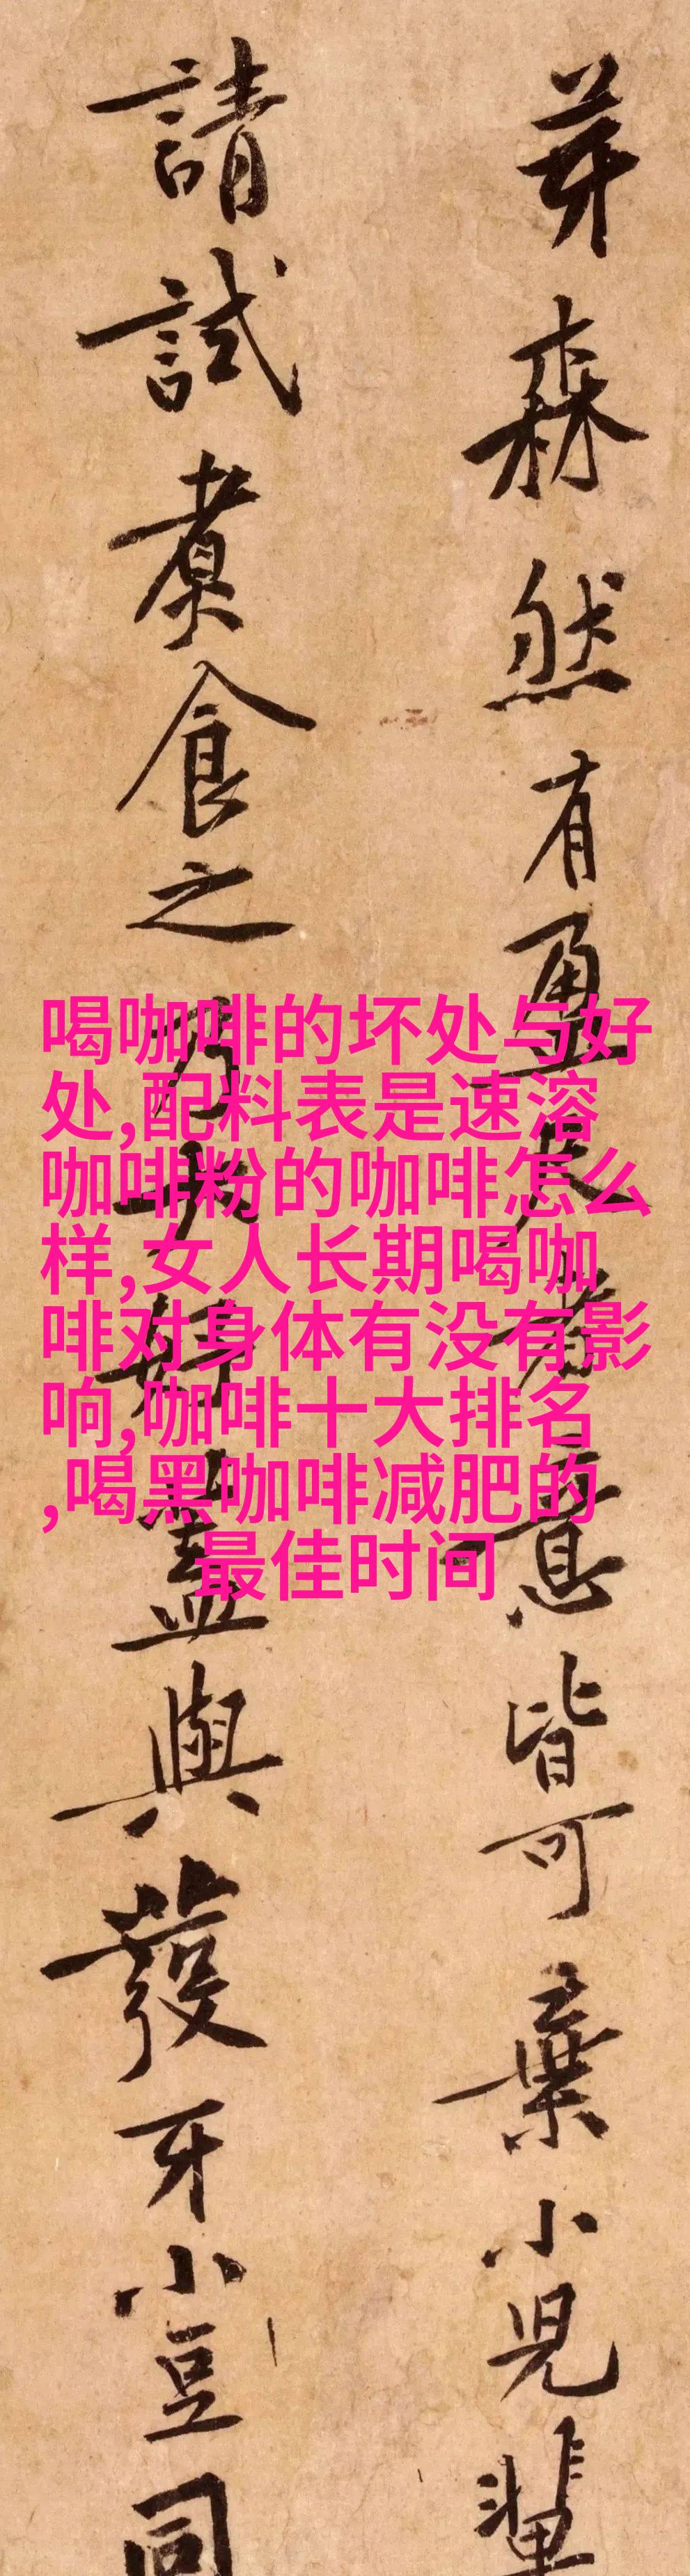 芽森然有盈尺者意皆可棄小兒輩
請試煮食之乃大好蓋與發牙小豆同
喝咖啡的坏处与好
处,配料表是速溶
咖啡粉的咖啡怎么
样,女人长期喝咖
啡对身体有没有影
响,咖啡十大排名
,喝黑咖啡减肥的
最佳时间